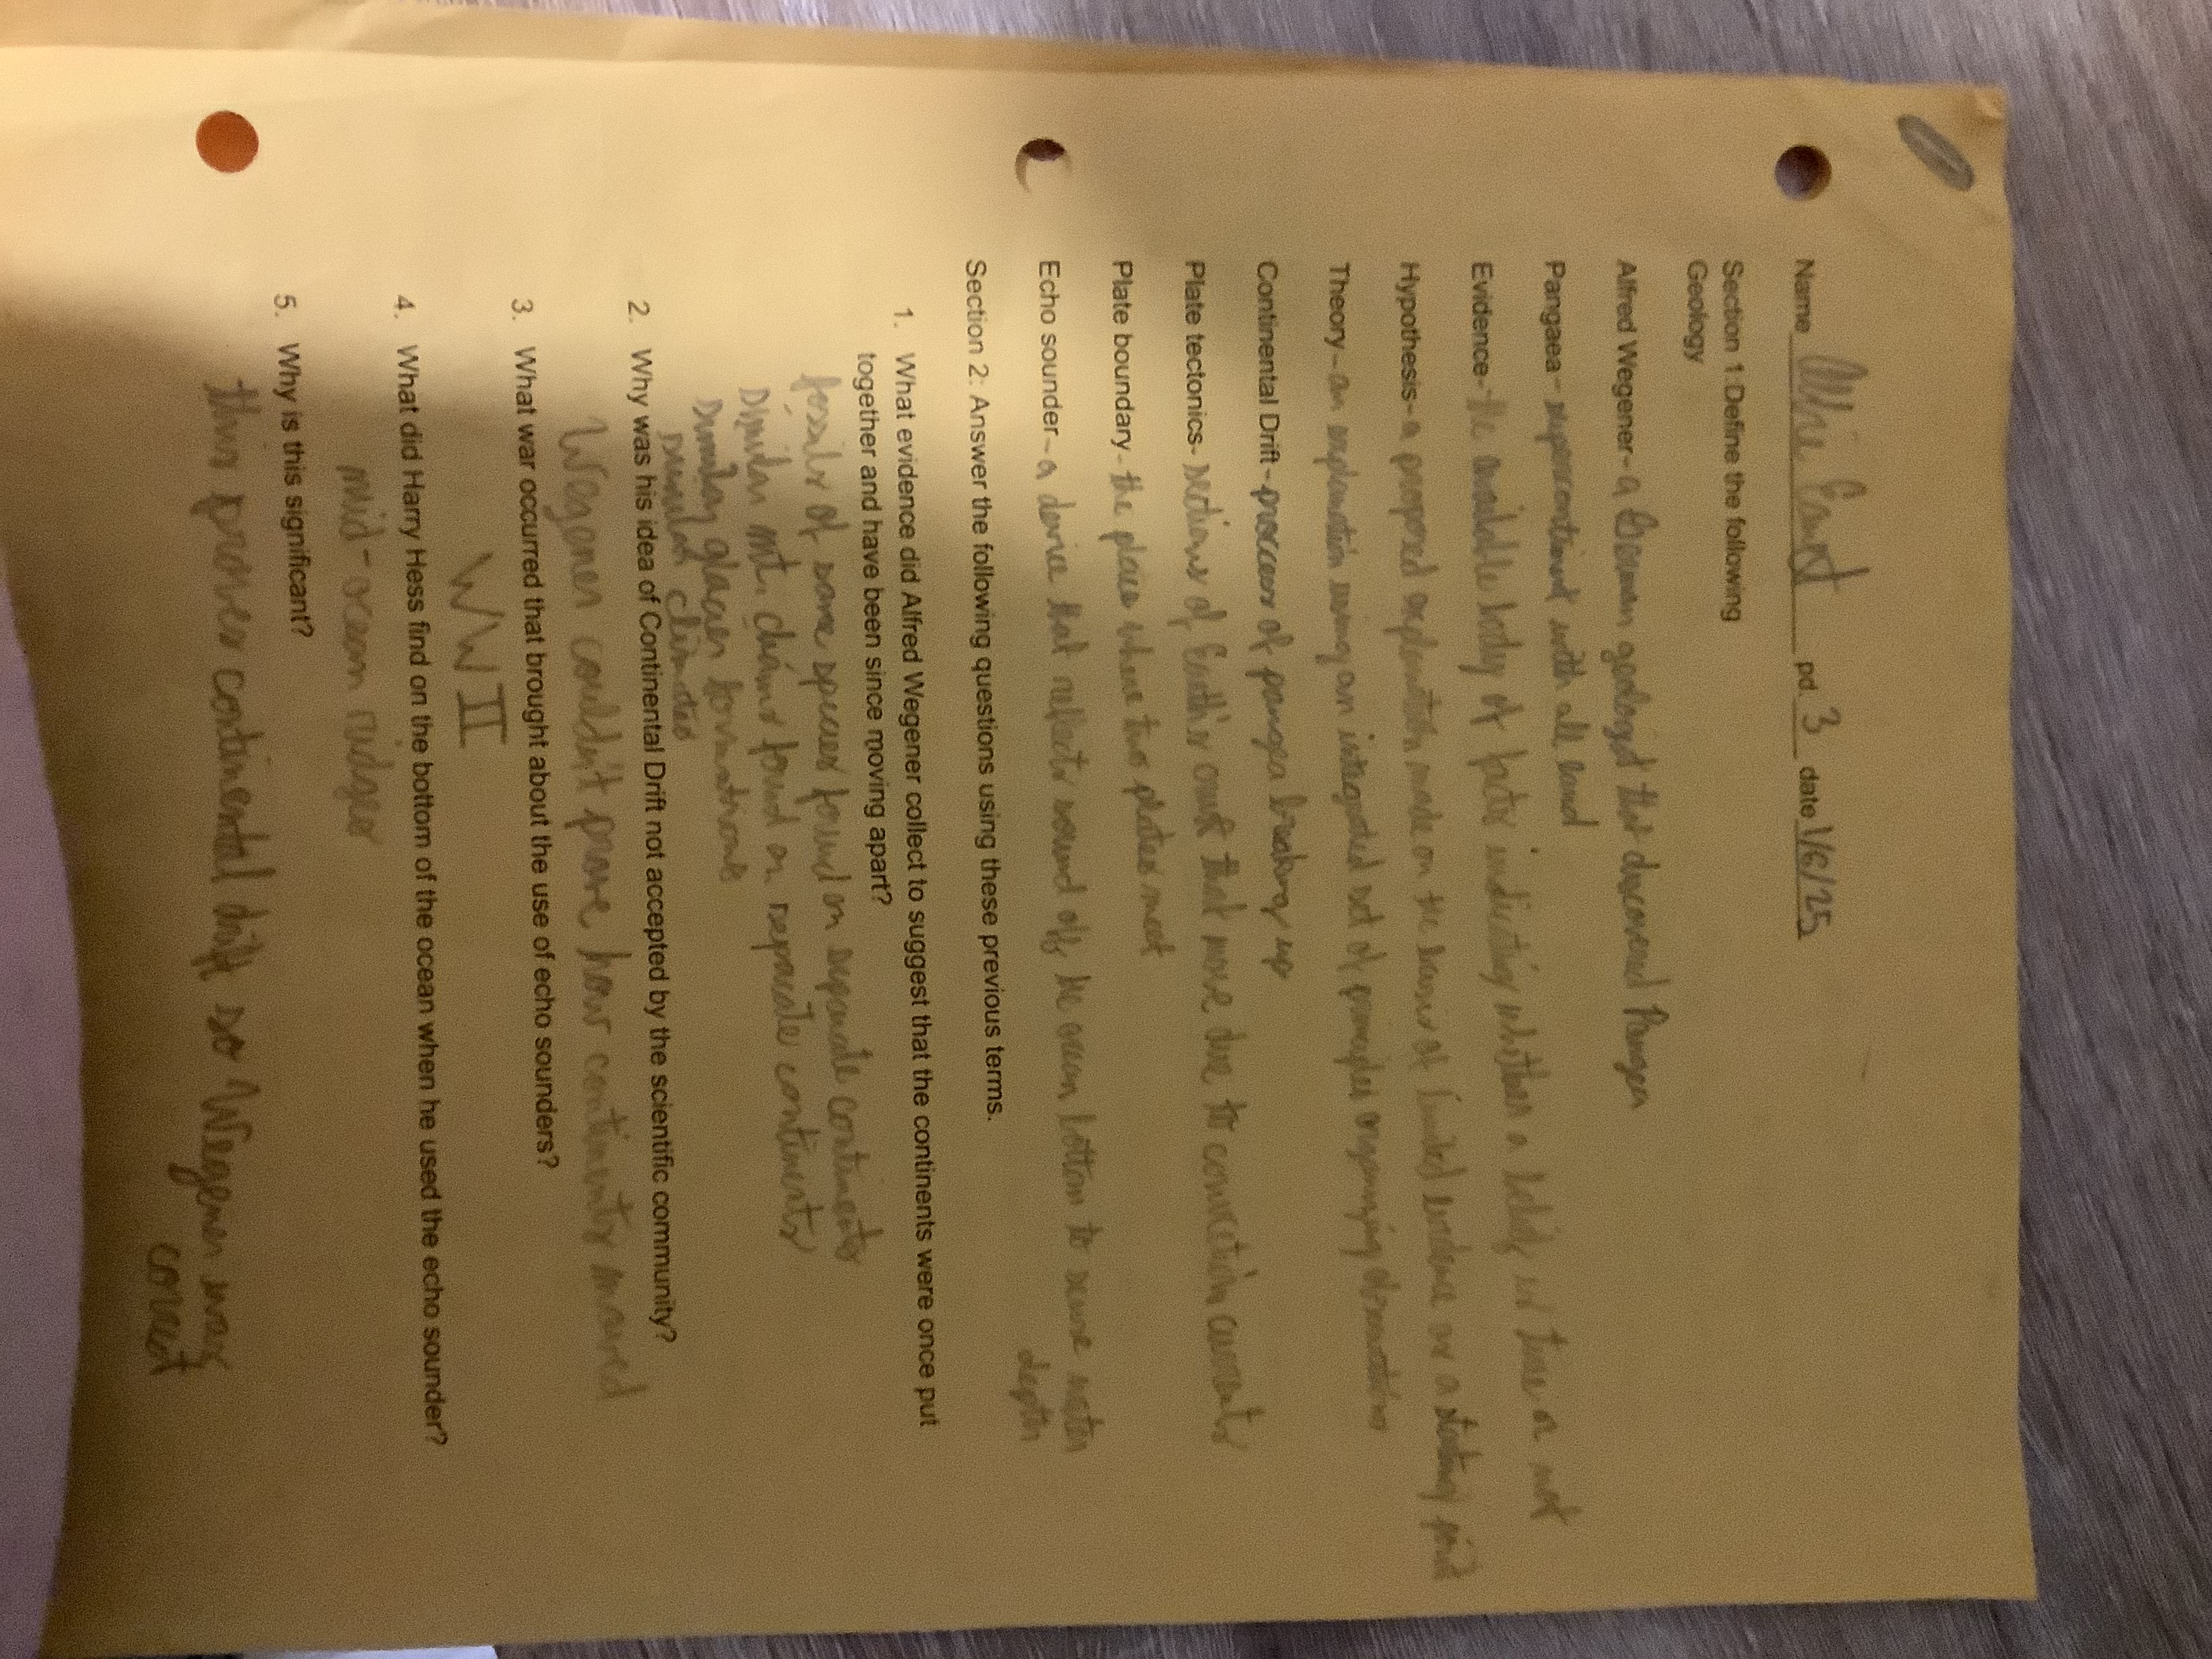 Name Allie Ernst pd. 3 date 1/6/25
Section 1 Define the following
Geology
Alfred Wegener - a German geologist that discovered Pangea
Pangaea - supercontinent with all land
Evidence - the available body of facts indicating whether a belief is true or not
Hypothesis - a proposed explanation made on the basis of limited evidence as a starting point
Theory - an explanation using an integrated set of principles organizing observations
Continental Drift - process of pangea breaking up
Plate tectonics - sections of Earth's crust that move due to convection currents
Plate boundary - the place where two plates meet
Echo sounder - a device that reflects sound off the ocean bottom to sense water
depth
Section 2: Answer the following questions using these previous terms.
1. What evidence did Alfred Wegener collect to suggest that the continents were once put
together and have been since moving apart?
fossils of same species found on separate continents
similar mt. chains found on separate continents
similar glacier formations
climates
2. Why was his idea of Continental Drift not accepted by the scientific community?
Wegener couldn't prove how continents moved
3. What war occurred that brought about the use of echo sounders?
WW II
4. What did Harry Hess find on the bottom of the ocean when he used the echo sounder?
mid-ocean ridges
5. Why is this significant?
this proves continental drift so Wegener was
correct